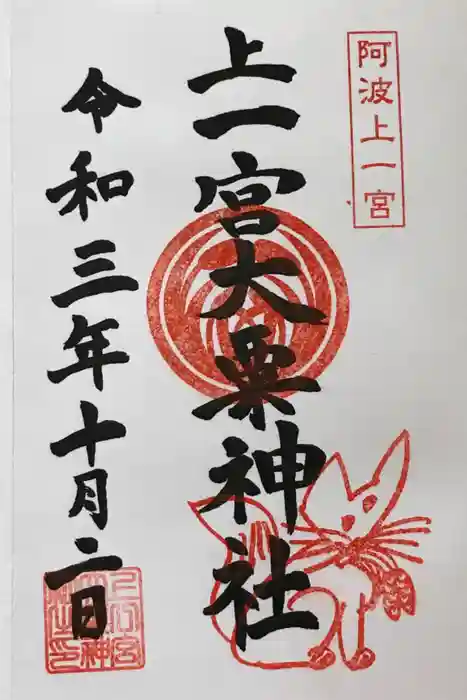 阿波上一宮
上一宮大粟神社
令和三年十月二日